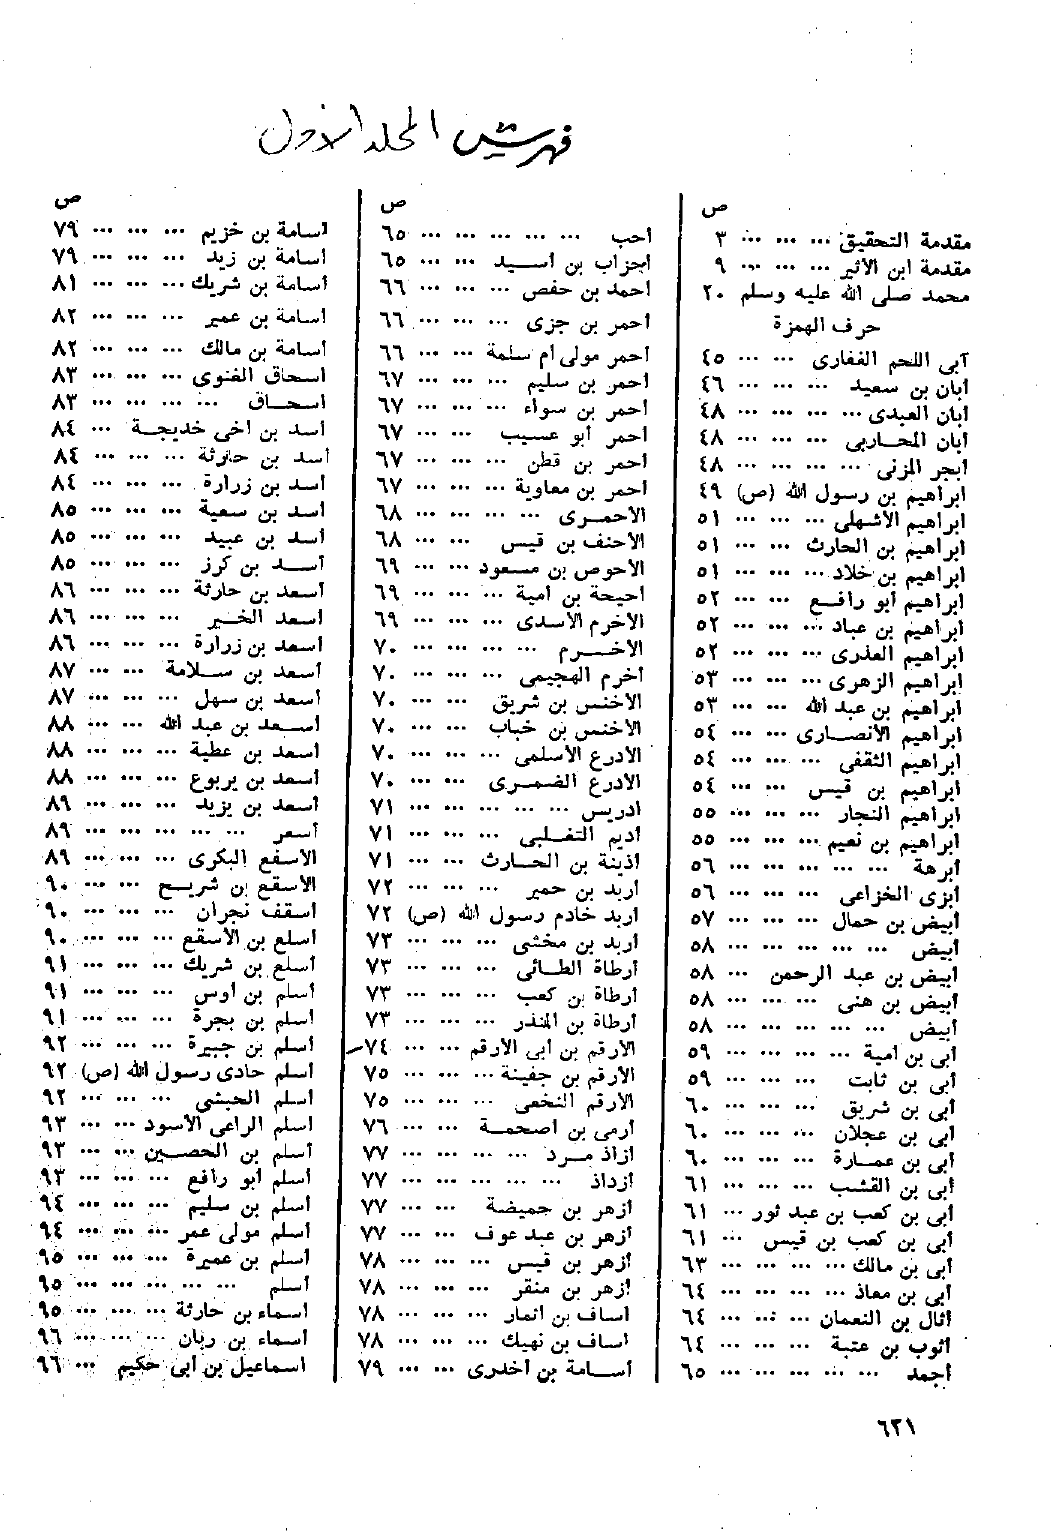 فهرس المجلد الأول
ص
مقدمة التحقيق ... ... ... ٣
مقدمة ابن الأثير ... ... ... ٩
محمد صلى الله عليه وسلم ٢٠
حرف الهمزة
آبى اللحم الغفارى ... ... ٤٥
أبان بن سعيد ... ... ... ٤٦
أبان العبدى ... ... ... ... ٤٨
أبان المحاربى ... ... ... ٤٨
أبجر المزنى ... ... ... ... ٤٨
ابراهيم بن رسول الله (ص) ٤٩
ابراهيم الأشهلى ... ... ... ٥١
ابراهيم بن الحارث ... ... ٥١
ابراهيم بن خلاد ... ... ... ٥١
ابراهيم أبو رافع ... ... ٥٢
ابراهيم بن عباد ... ... ... ٥٢
ابراهيم العذرى ... ... ... ٥٢
ابراهيم الزهرى ... ... ... ٥٣
ابراهيم بن عبد الله ... ... ٥٣
ابراهيم الأنصارى ... ... ٥٤
ابراهيم الثقفى ... ... ... ٥٤
ابراهيم بن قيس ... ... ٥٤
ابراهيم النجار ... ... ... ٥٥
ابراهيم بن نعيم ... ... ... ٥٥
أبرهة ... ... ... ... ... ٥٦
أبزى الخزاعى ... ... ... ٥٦
أبيض بن حمال ... ... ... ٥٧
أبيض ... ... ... ... ... ٥٨
أبيض بن عبد الرحمن ... ٥٨
أبيض بن هنى ... ... ... ٥٨
أبيض ... ... ... ... ... ٥٨
أبى بن أمية ... ... ... ... ٥٩
أبى بن ثابت ... ... ... ٥٩
أبى بن شريق ... ... ... ٦٠
أبى بن عجلان ... ... ... ٦٠
أبى بن عمارة ... ... ... ٦٠
أبى بن القشب ... ... ... ٦١
أبى بن كعب بن عبد ثور ... ٦١
أبى بن كعب بن قيس ... ٦١
أبى بن مالك ... ... ... ... ٦٣
أبى بن معاذ ... ... ... ... ٦٤
أثال بن النعمان ... ... ... ٦٤
أثوب بن عتبة ... ... ... ٦٤
أجمد ... ... ... ... ... ٦٥
ص
أحب ... ... ... ... ... ٦٥
أحزاب بن أسيد ... ... ٦٥
أحمد بن حفص ... ... ... ٦٦
أحمر بن جزى ... ... ... ٦٦
أحمر مولى أم سلمة ... ... ٦٦
أحمر بن سليم ... ... ... ٦٧
أحمر بن سواء ... ... ... ٦٧
أحمر أبو عسيب ... ... ٦٧
أحمر بن قطن ... ... ... ٦٧
أحمر بن معاوية ... ... ... ٦٧
الأحمرى ... ... ... ... ٦٨
الأحنف بن قيس ... ... ٦٨
الأحوص بن مسعود ... ... ٦٩
أحيحة بن أمية ... ... ... ٦٩
الأخرم الأسدى ... ... ... ٦٩
الأخرم ... ... ... ... ٧٠
أخرم الهجيمى ... ... ... ٧٠
الأخنس بن شريق ... ... ٧٠
الأخنس بن خباب ... ... ٧٠
الأدرع الأسلمى ... ... ... ٧٠
الأدرع الضمرى ... ... ٧٠
ادريس ... ... ... ... ... ٧١
أديم التغلبى ... ... ... ٧١
أذينة بن الحارث ... ... ٧١
أربد بن حمير ... ... ... ٧٢
أربد خادم رسول الله (ص) ٧٢
أربد بن مخشى ... ... ... ٧٣
أرطاة الطائى ... ... ... ٧٣
أرطاة بن كعب ... ... ... ٧٣
أرطاة بن المنذر ... ... ... ٧٣
الأرقم بن أبى الأرقم ... ... ٧٤
الأرقم بن جفينة ... ... ... ٧٥
الأرقم النخعى ... ... ... ٧٥
أرمى بن أصحمة ... ... ٧٦
أزاذ مرد ... ... ... ... ٧٧
أزداذ ... ... ... ... ... ٧٧
أزهر بن حميضة ... ... ٧٧
أزهر بن عبد عوف ... ... ٧٧
أزهر بن قيس ... ... ... ٧٨
أزهر بن منقر ... ... ... ٧٨
اساف بن أنمار ... ... ... ٧٨
اساف بن نهيك ... ... ... ٧٨
أسامة بن أخدرى ... ... ٧٩
ص
أسامة بن خزيم ... ... ... ٧٩
أسامة بن زيد ... ... ... ٧٩
أسامة بن شريك ... ... ... ٨١
أسامة بن عمير ... ... ... ٨٢
أسامة بن مالك ... ... ... ٨٢
اسحاق الغنوى ... ... ... ٨٣
اسحاق ... ... ... ... ٨٣
أسد بن أخى خديجة ... ٨٤
أسد بن حارثة ... ... ... ٨٤
أسد بن زرارة ... ... ... ٨٤
أسد بن سعية ... ... ... ٨٥
أسد بن عبيد ... ... ... ٨٥
أسد بن كرز ... ... ... ٨٥
أسعد بن حارثة ... ... ... ٨٦
أسعد الخير ... ... ... ٨٦
أسعد بن زرارة ... ... ... ٨٦
أسعد بن سلامة ... ... ٨٧
أسعد بن سهل ... ... ... ٨٧
أسعد بن عبد الله ... ... ٨٨
أسعد بن عطية ... ... ... ٨٨
أسعد بن يربوع ... ... ... ٨٨
أسعد بن يزيد ... ... ... ٨٩
أسعر ... ... ... ... ... ٨٩
الأسفع البكرى ... ... ... ٨٩
الأسقع بن شريح ... ... ٩٠
أسقف نجران ... ... ... ٩٠
أسلع بن الأسقع ... ... ... ٩٠
أسلع بن شريك ... ... ... ٩١
أسلم بن أوس ... ... ... ٩١
أسلم بن بجرة ... ... ... ٩١
أسلم بن جبيرة ... ... ... ٩٢
أسلم حادى رسول الله (ص) ٩٢
أسلم الحبشى ... ... ... ٩٢
أسلم الراعى الأسود ... ... ٩٣
أسلم بن الحصين ... ... ٩٣
أسلم أبو رافع ... ... ... ٩٣
أسلم بن سليم ... ... ... ٩٤
أسلم مولى عمر ... ... ... ٩٤
أسلم بن عميرة ... ... ... ٩٥
أسلم ... ... ... ... ... ٩٥
أسماء بن حارثة ... ... ... ٩٥
أسماء بن ربان ... ... ... ٩٦
اسماعيل بن أبى حكيم ... ٩٦
٦٢١